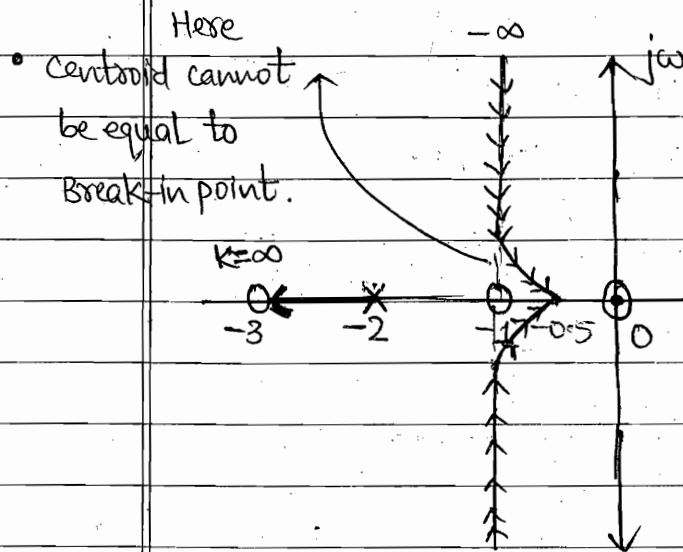 Here
• Centroid cannot
be equal to
Break-in point.
-∞
jω
K=∞
-3
-2
-1
-0.5
0